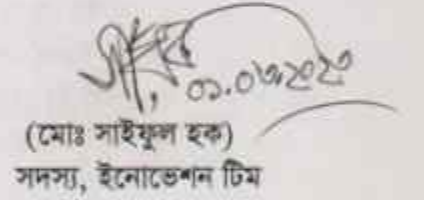 ০১.০৩.২০২৩
(মোঃ সাইফুল হক)
সদস্য, ইনোভেশন টিম